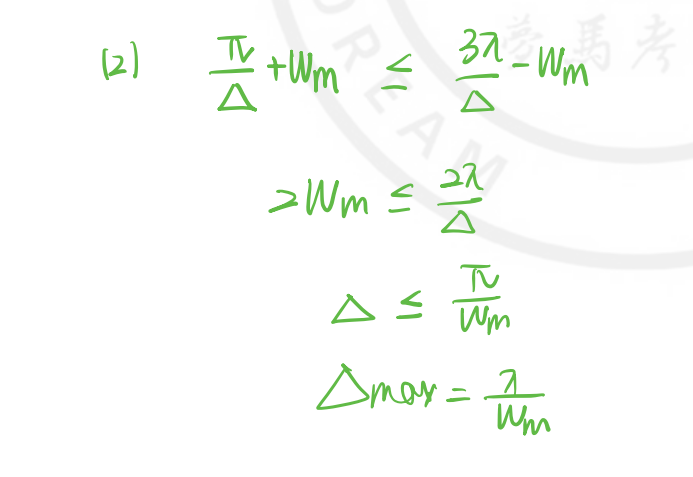 (2) π/Δ + Wm ≤ 3π/Δ - Wm
2Wm ≤ 2π/Δ
Δ ≤ π/Wm
Δmax = π/Wm
DREAM
馬考